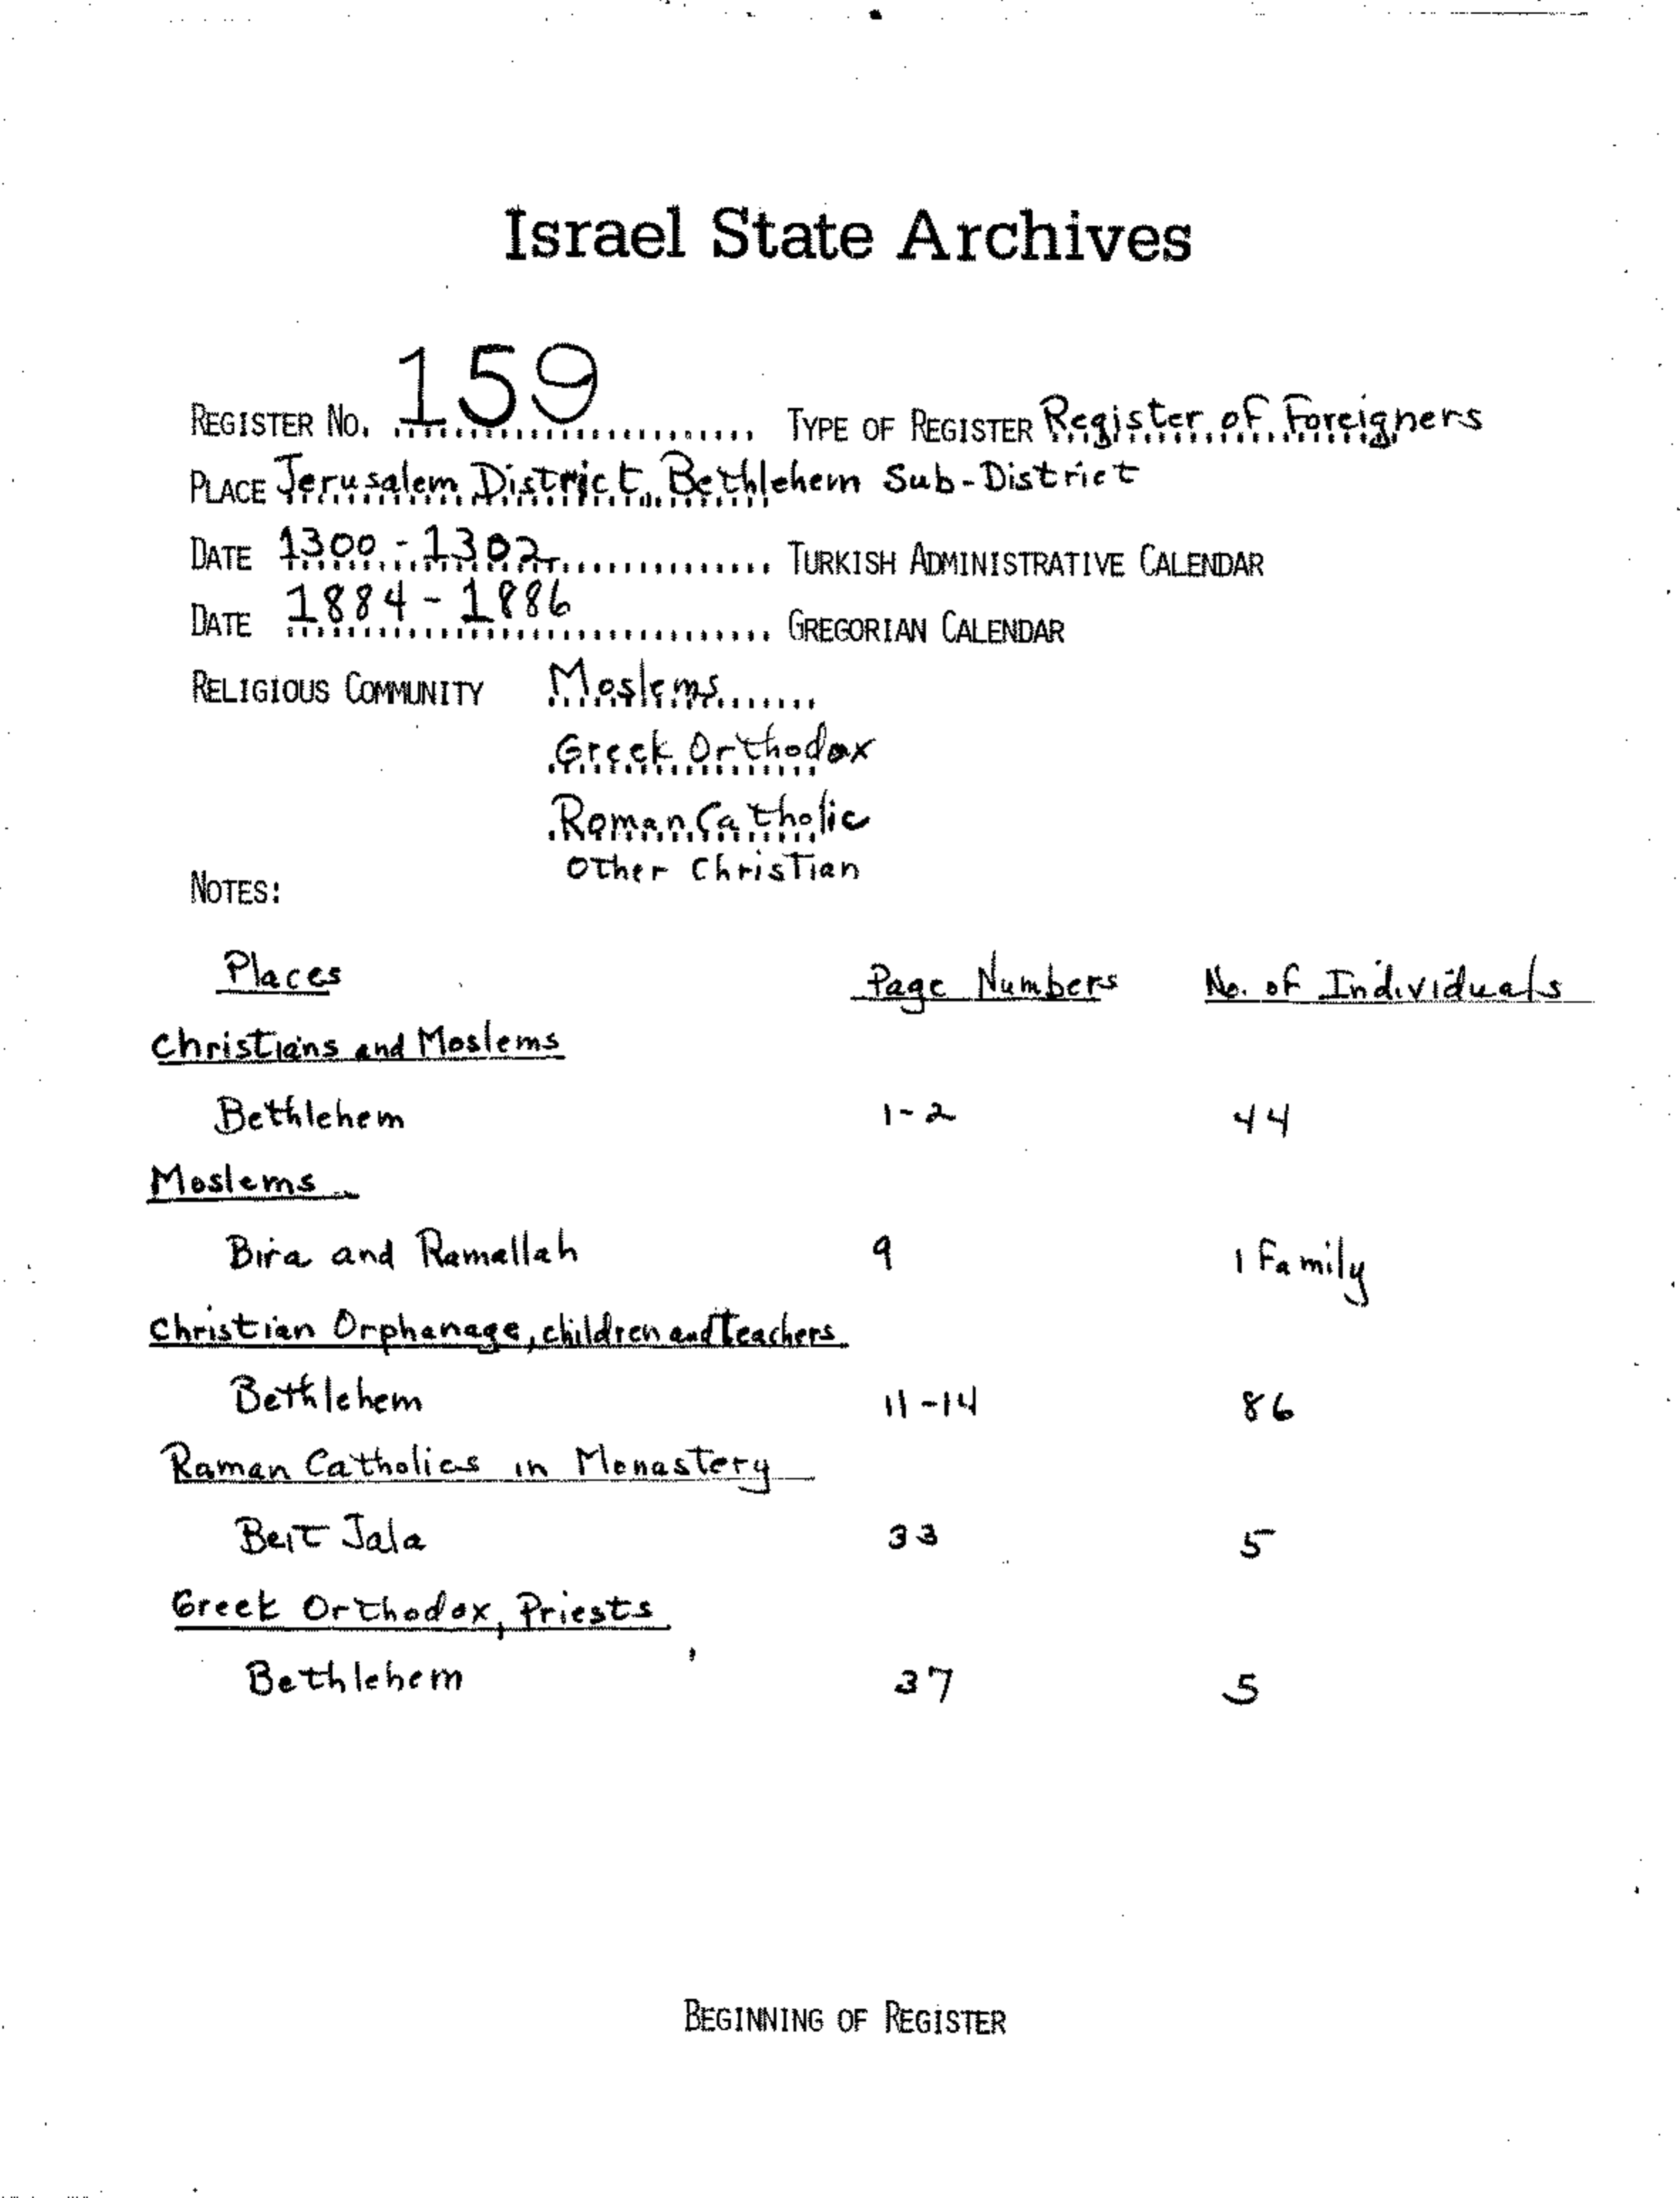 Israel State Archives
REGISTER NO. 159 TYPE OF REGISTER Register of Foreigners
PLACE Jerusalem District, Bethlehem Sub-District
DATE 1300 - 1302 TURKISH ADMINISTRATIVE CALENDAR
DATE 1884 - 1886 GREGORIAN CALENDAR
RELIGIOUS COMMUNITY Moslems
Greek Orthodox
Roman Catholic
Other Christian
NOTES:
Places Page Numbers No. of Individuals
Christians and Moslems
Bethlehem 1-2 44
Moslems
Bira and Ramallah 9 1 Family
Christian Orphanage, children and teachers
Bethlehem 11-14 86
Roman Catholics in Monastery
Beit Jala 33 5
Greek Orthodox, Priests
Bethlehem 37 5
BEGINNING OF REGISTER